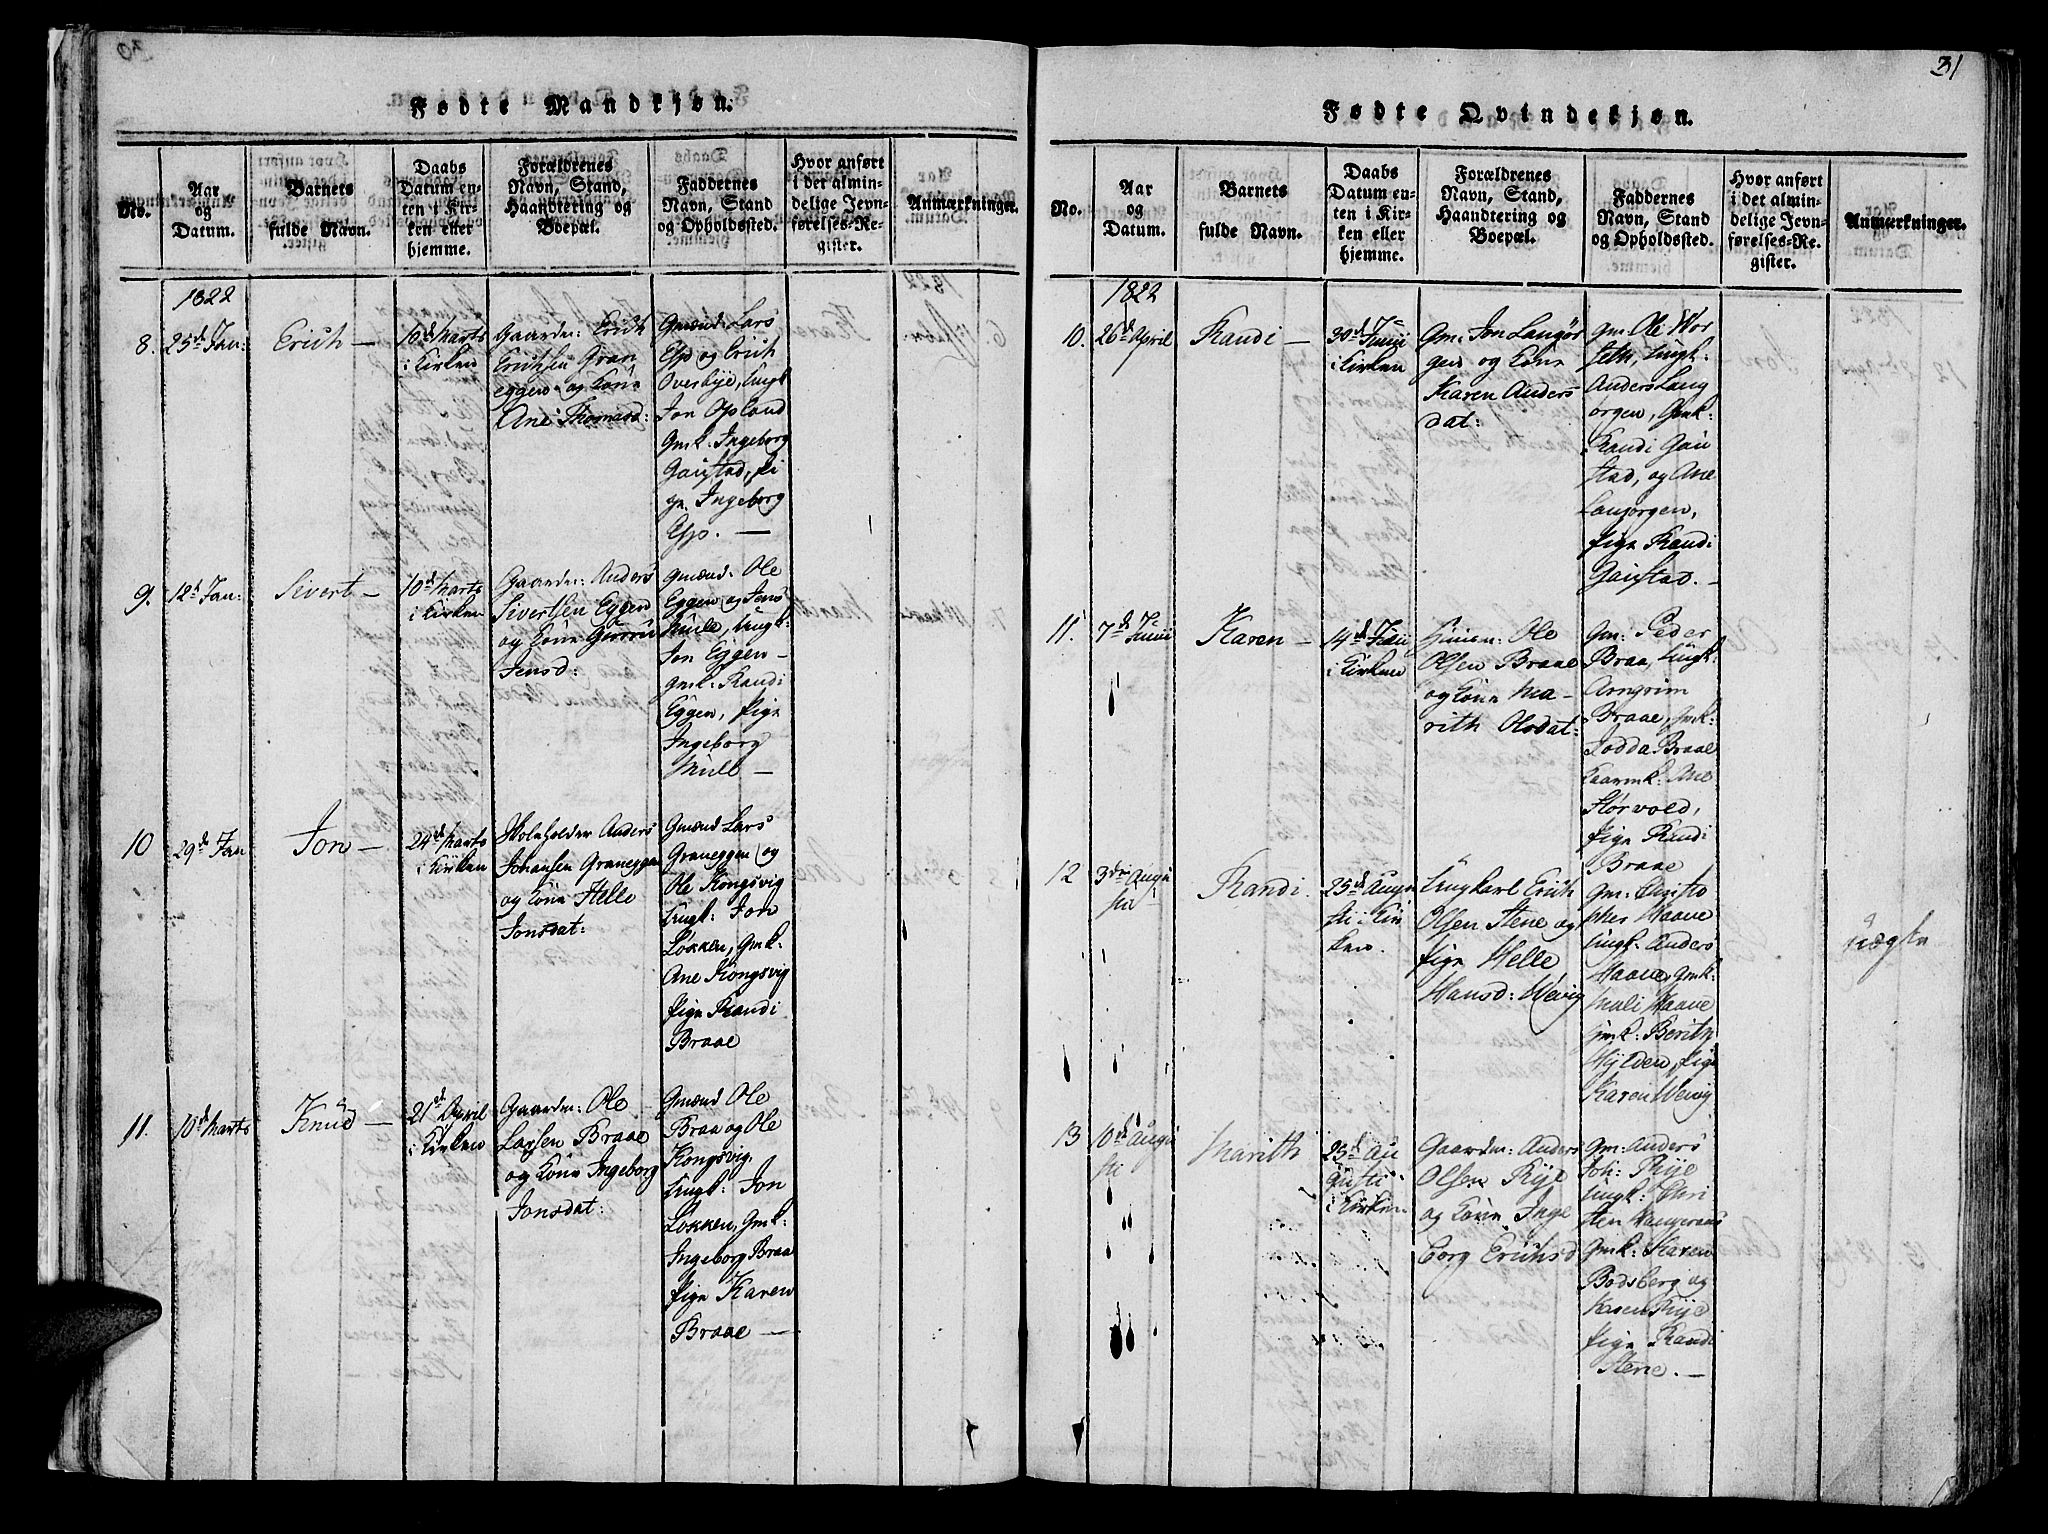 30
Fødte Mandkjøn.
No.
Aar
og
Datum.
Barnets
fulde Navn.
Daabs
Datum en-
ten i Kir-
ken eller
hjemme.
Forældrenes
Navn, Stand,
Haandtering og
Boepæl.
Faddernes
Navn, Stand
og Opholdssted.
Hvor anført
i det almin-
delige Jevn-
førelses-Re-
gister.
Anmærkninger.
1822
8.
25d Jan:
Erich —
10d Marts
i Kirken
Gaardm: Erich
Erichsen Gran
eggen og Kone
Ane Thomasd:
Gmænd: Lars
Esp og Erich
Overbye, Ungk
Jon Opland
Gmk: Ingeborg
Gaustad, Pi
ge Ingeborg
Esp. —
9.
12d Jan:
Sivert —
10d Marts
i Kirken
Gaardm: Anders
Sivertsen Eggen
og Kone Gurru
Jensd:
Gmænd: Ole
Eggen og Jens
Mule, Ungk:
Jon Eggen —
Gmk: Randi
Eggen, Pige
Ingeborg
Mule —
10
29d Jan
Jon —
24d Marts
i Kirken
Skoleholder Anders
Johansen Graneggen
og Kone Helle
Jonsdat:
Gmænd Lars
Graneggen og
Ole Kongsvig
Ungk: Jon
Løkken, Gmk:
Ane Kongsvig
Pige Randi
Braae
11.
10d Marts
Knud —
21d April
i Kirken
Gaardm: Ole
Larsen Braae
og Kone Ingeborg
Jonsdat:
Gmænd Ole
Braa og Ole
Kongsvig.
Ungk: Jon
Løkken, Gmk:
Ingeborg Braa
Pige Karen
Braae —
31
Fødte Qvindekjøn.
No.
Aar
og
Datum.
Barnets
fulde Navn.
Daabs
Datum en-
ten i Kir-
ken eller
hjemme.
Forældrenes
Navn, Stand,
Haandtering og
Boepæl.
Faddernes
Navn, Stand
og Opholdssted.
Hvor anført
i det almin-
delige Jevn-
førelses-Re-
gister.
Anmærkninger.
1822
10.
26d April
Randi —
30d Junii
i Kirken
Gm: Jon Langør
gen og Kone
Karen Anders
dat:
Gm: Ole Wor
seth, Ungk:
Anders Lang
ørgen, Gmk:
Randi Gau
stad, og Ane
Lanjorgen,
Pige Randi
Gaustad. —
11.
7d Junii
Karen —
14d
i Kirken
Ole
Olsen Braae
og Kone Ma-
rith Olsdat:
Gm: Peder
Braa, Ungk:
Arngrim
Braae, Gmk:
Lodda Braae
Ane
Størvold,
Pige Randi
Braae
12
3die Augu
sti
Randi.
25d Augu
sti i Kir
ken.
Ungkarl Erich
Olsen Stene og
Pige Helle
Hansd: Wevig
Gm: Christo
pher Haave
Ungk: Anders
Haave, Gmk:
Mali Haave
Gmk: Berith
Hylden, Pige
Karen Wevig
uægte
13
10d Augu
sti
Marith
25d Au
gusti
i Kirken
Gaardm: Anders
Olsen Rye
og Kone Inge
borg Erichsd
Gm: Anders
Joh: Rye
Ungk: Chri
sten
Gmk: Karen
Bodsberg og
Karen Rye
Pige Randi
Stene. —